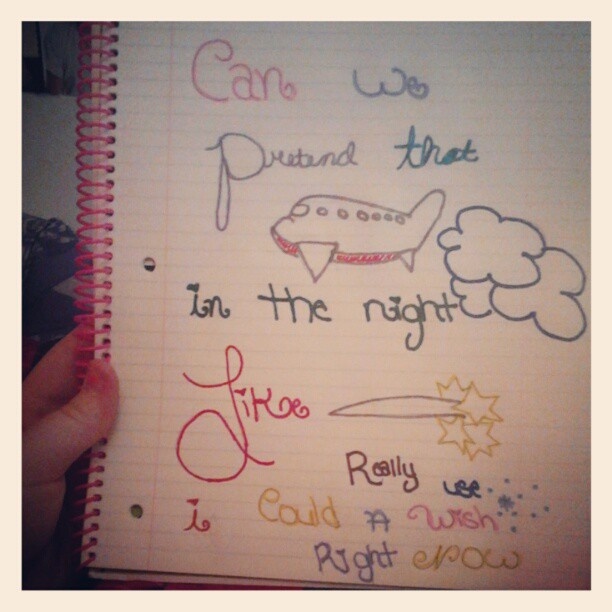 Can we
Pretend that
in the night
Like
Really use
i Could A Wish
Right Now